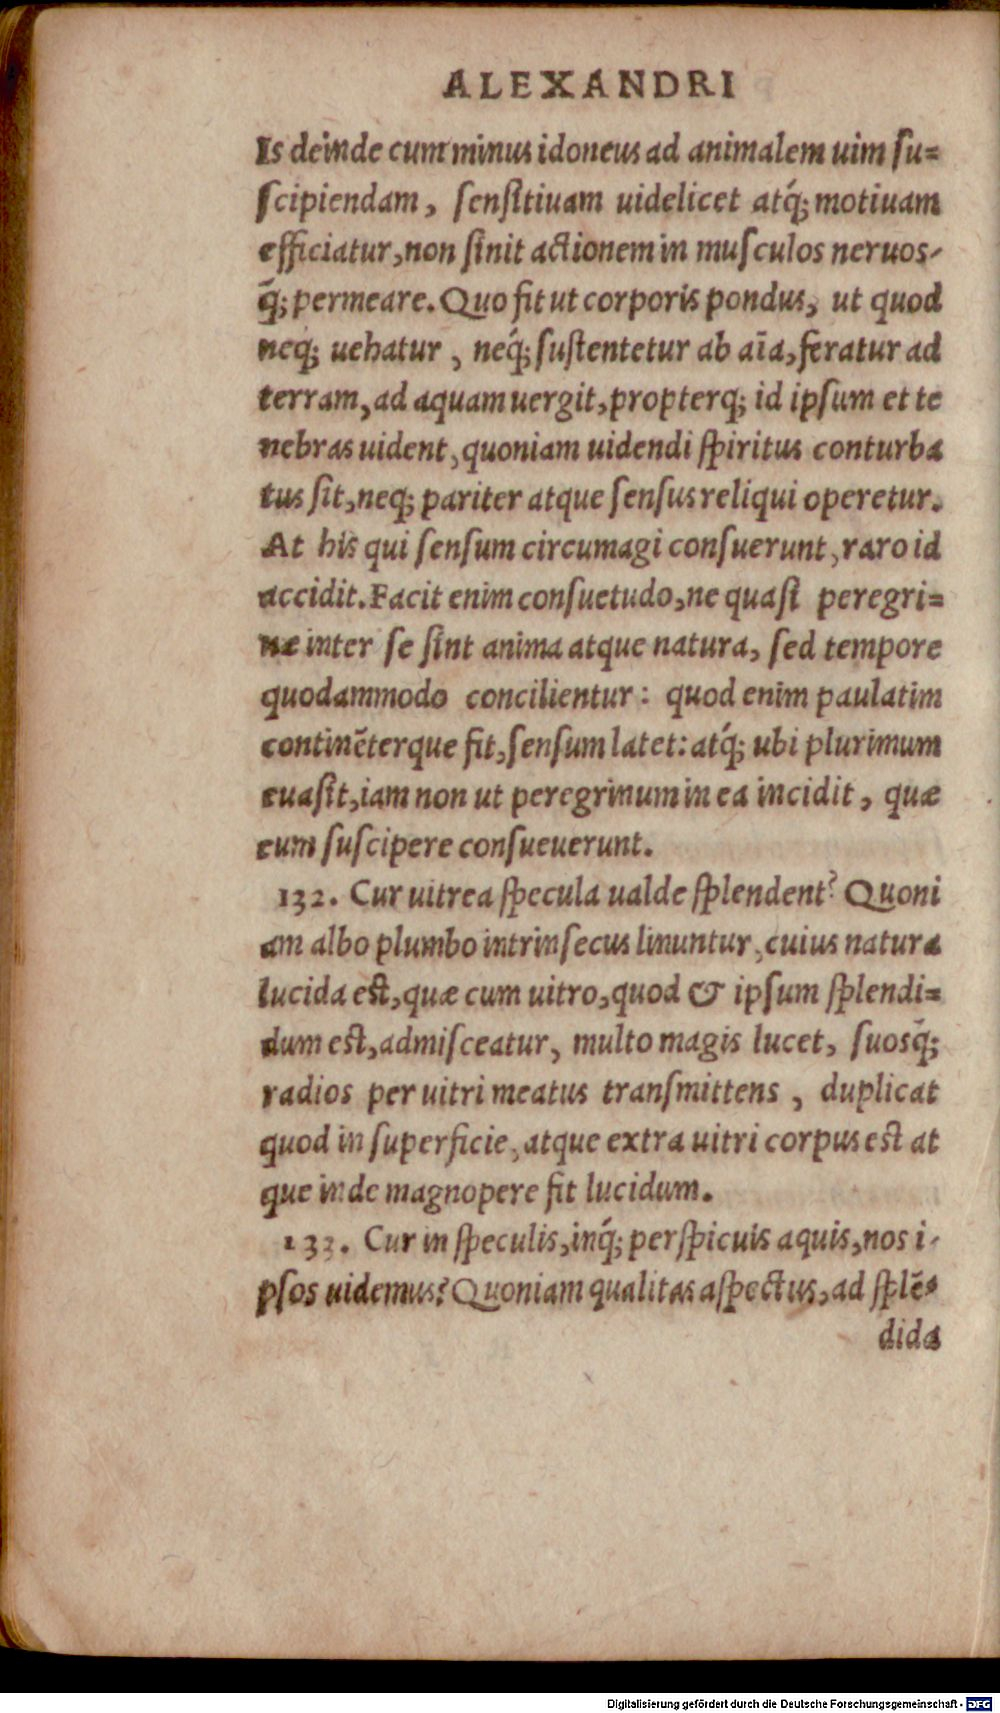 ALEXANDRI
Is deinde cum minus idoneus ad animalem uim su=
scipiendam, sensitiuam uidelicet atq́; motiuam
efficiatur, non sinit actionem in musculos neruos-
q́; permeare. Quo fit ut corporis pondus, ut quod
neq; uehatur, neq́; sustentetur ab aīa, feratur ad
terram, ad aquam uergit, propterq; id ipsum et te
nebras uident, quoniam uidendi spiritus conturba
tus sit, neq; pariter atque sensus reliqui operetur.
At his qui sensum circumagi consuerunt, raro id
accidit. Facit enim consuetudo, ne quasi peregri=
næ inter se sint anima atque natura, sed tempore
quodammodo concilientur: quod enim paulatim
continēterque fit, sensum latet: atq́; ubi plurimum
euasit, iam non ut peregrinum in ea incidit, quæ
eum suscipere consueuerunt.
132. Cur uitrea specula ualde splendent? Quoni
am albo plumbo intrinsecus linuntur, cuius natura
lucida est, quæ cum uitro, quod & ipsum splendi=
dum est, admisceatur, multo magis lucet, suosq́;
radios per uitri meatus transmittens, duplicat
quod in superficie, atque extra uitri corpus est at
que inde magnopere fit lucidum.
133. Cur in speculis, inq́; perspicuis aquis, nos i-
psos uidemus? Quoniam qualitas aspectus, ad splē-
dida
Digitalisierung gefördert durch die Deutsche Forschungsgemeinschaft - DFG